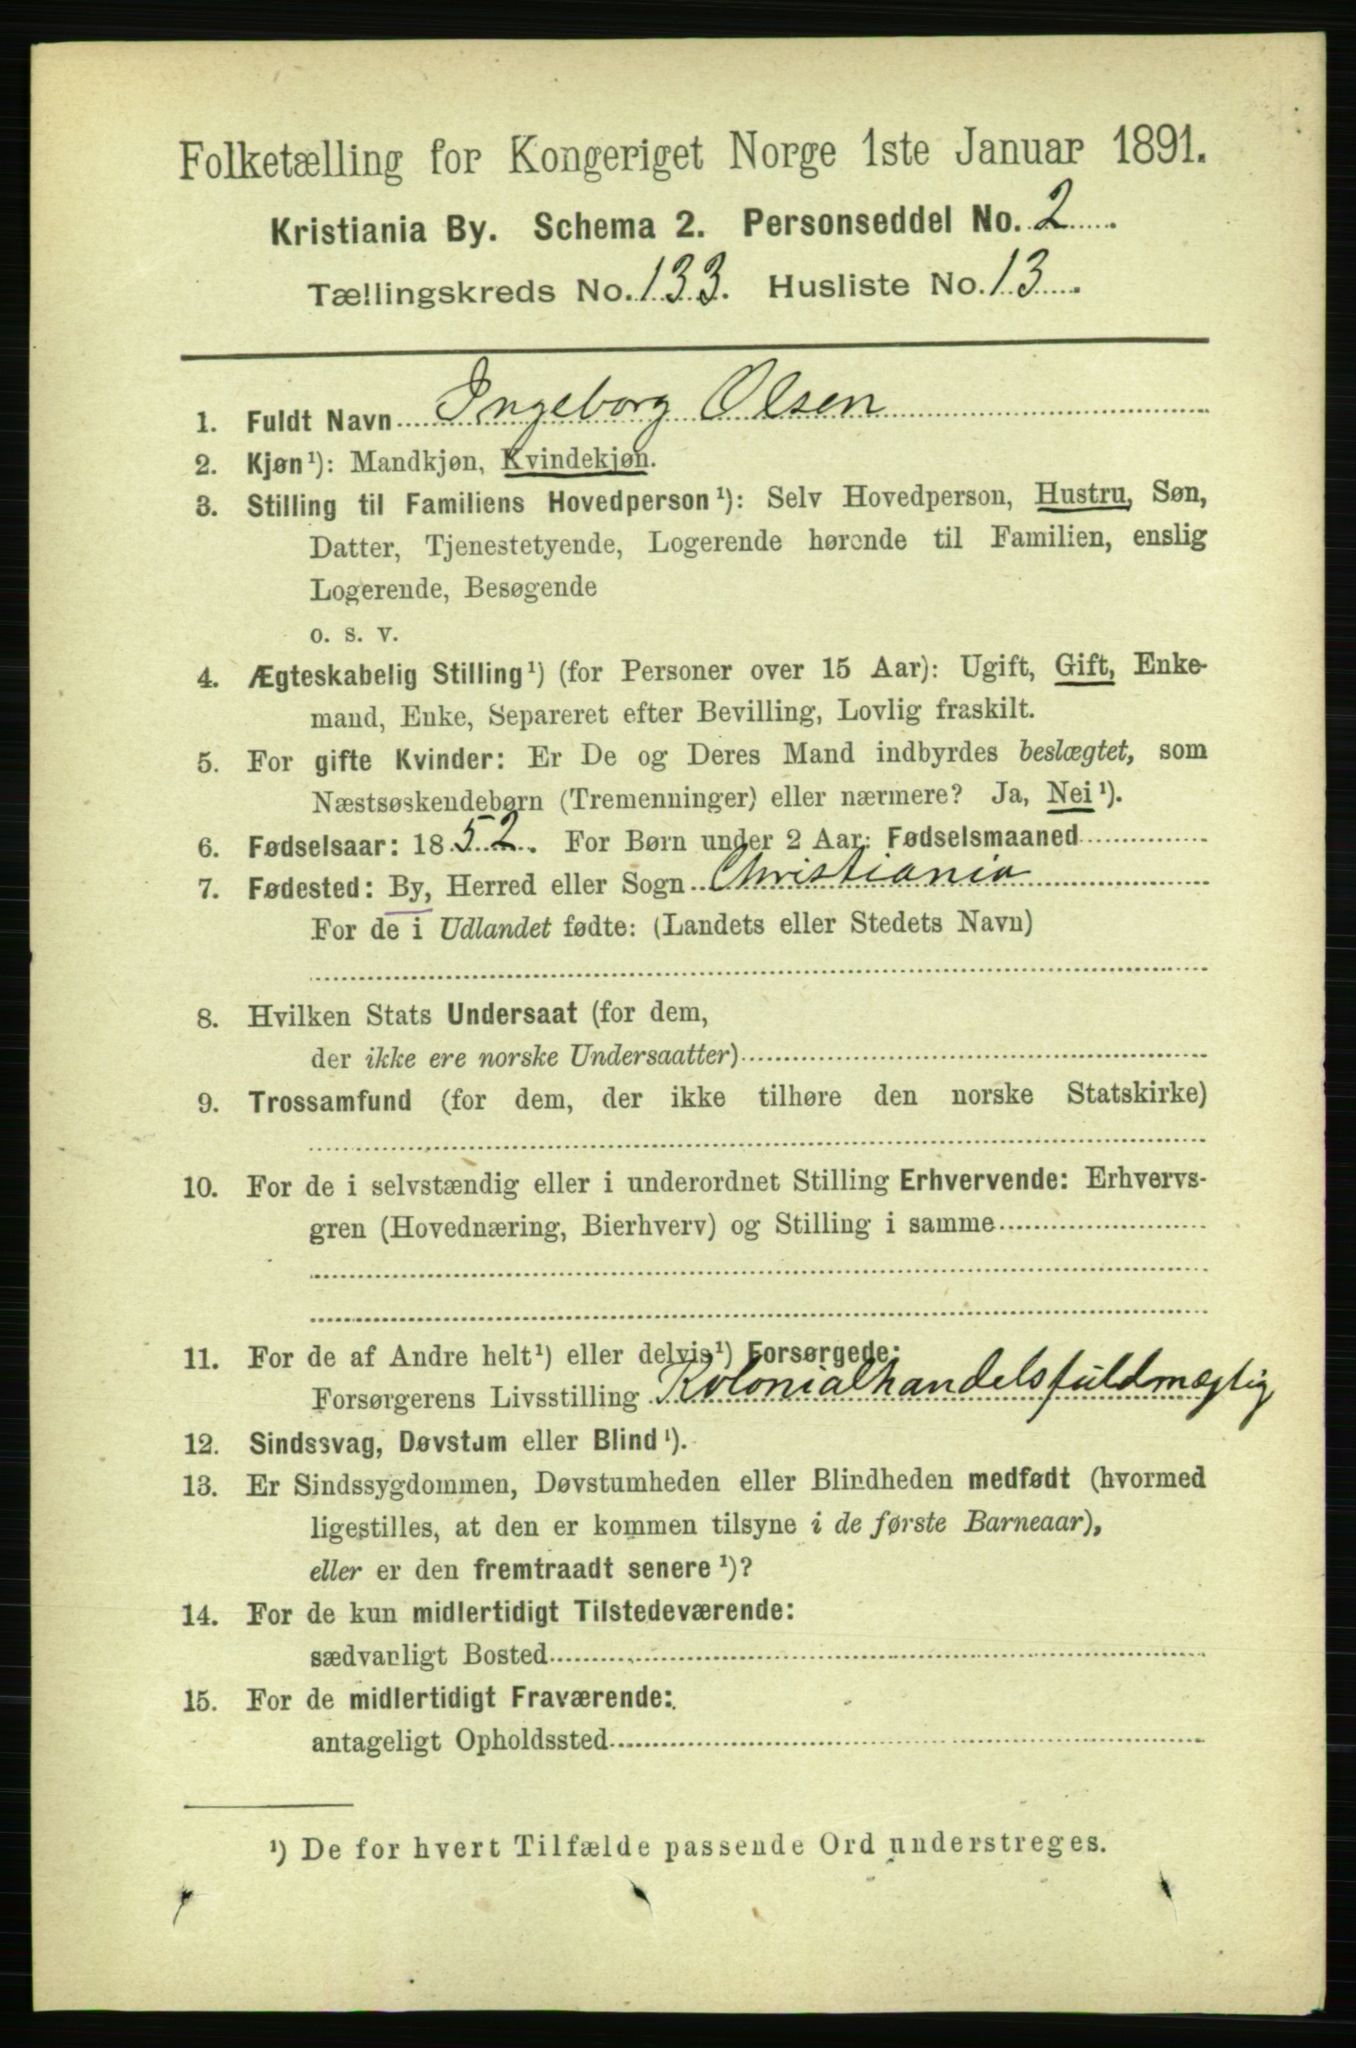 Folketælling for Kongeriget Norge 1ste Januar 1891.
Kristiania By. Schema 2. Personseddel No. 2
Tællingskreds No. 133. Husliste No. 13
1. Fuldt Navn Ingeborg Olsen
2. Kjøn¹): Mandkjøn, Kvindekjøn.
3. Stilling til Familiens Hovedperson¹): Selv Hovedperson, Hustru, Søn,
Datter, Tjenestetyende, Logerende hørende til Familien, enslig
Logerende, Besøgende
o. s. v.
4. Ægteskabelig Stilling¹) (for Personer over 15 Aar): Ugift, Gift, Enke-
mand, Enke, Separeret efter Bevilling, Lovlig fraskilt.
5. For gifte Kvinder: Er De og Deres Mand indbyrdes beslægtet, som
Næstsøskendebørn (Tremenninger) eller nærmere? Ja, Nei¹).
6. Fødselsaar: 1852. For Børn under 2 Aar: Fødselsmaaned
7. Fødested: By, Herred eller Sogn Christiania
For de i Udlandet fødte: (Landets eller Stedets Navn)
8. Hvilken Stats Undersaat (for dem,
der ikke ere norske Undersaatter)
9. Trossamfund (for dem, der ikke tilhøre den norske Statskirke)
10. For de i selvstændig eller i underordnet Stilling Erhvervende: Erhvervs-
gren (Hovednæring, Bierhverv) og Stilling i samme
11. For de af Andre helt¹) eller delvis¹) Forsørgede:
Forsørgerens Livsstilling Kolonialhandelsfuldmægtig
12. Sindssvag, Døvstum eller Blind¹).
13. Er Sindssygdommen, Døvstumheden eller Blindheden medfødt (hvormed
ligestilles, at den er kommen tilsyne i de første Barneaar),
eller er den fremtraadt senere¹)?
14. For de kun midlertidigt Tilstedeværende:
sædvanligt Bosted
15. For de midlertidigt Fraværende:
antageligt Opholdssted
¹) De for hvert Tilfælde passende Ord understreges.